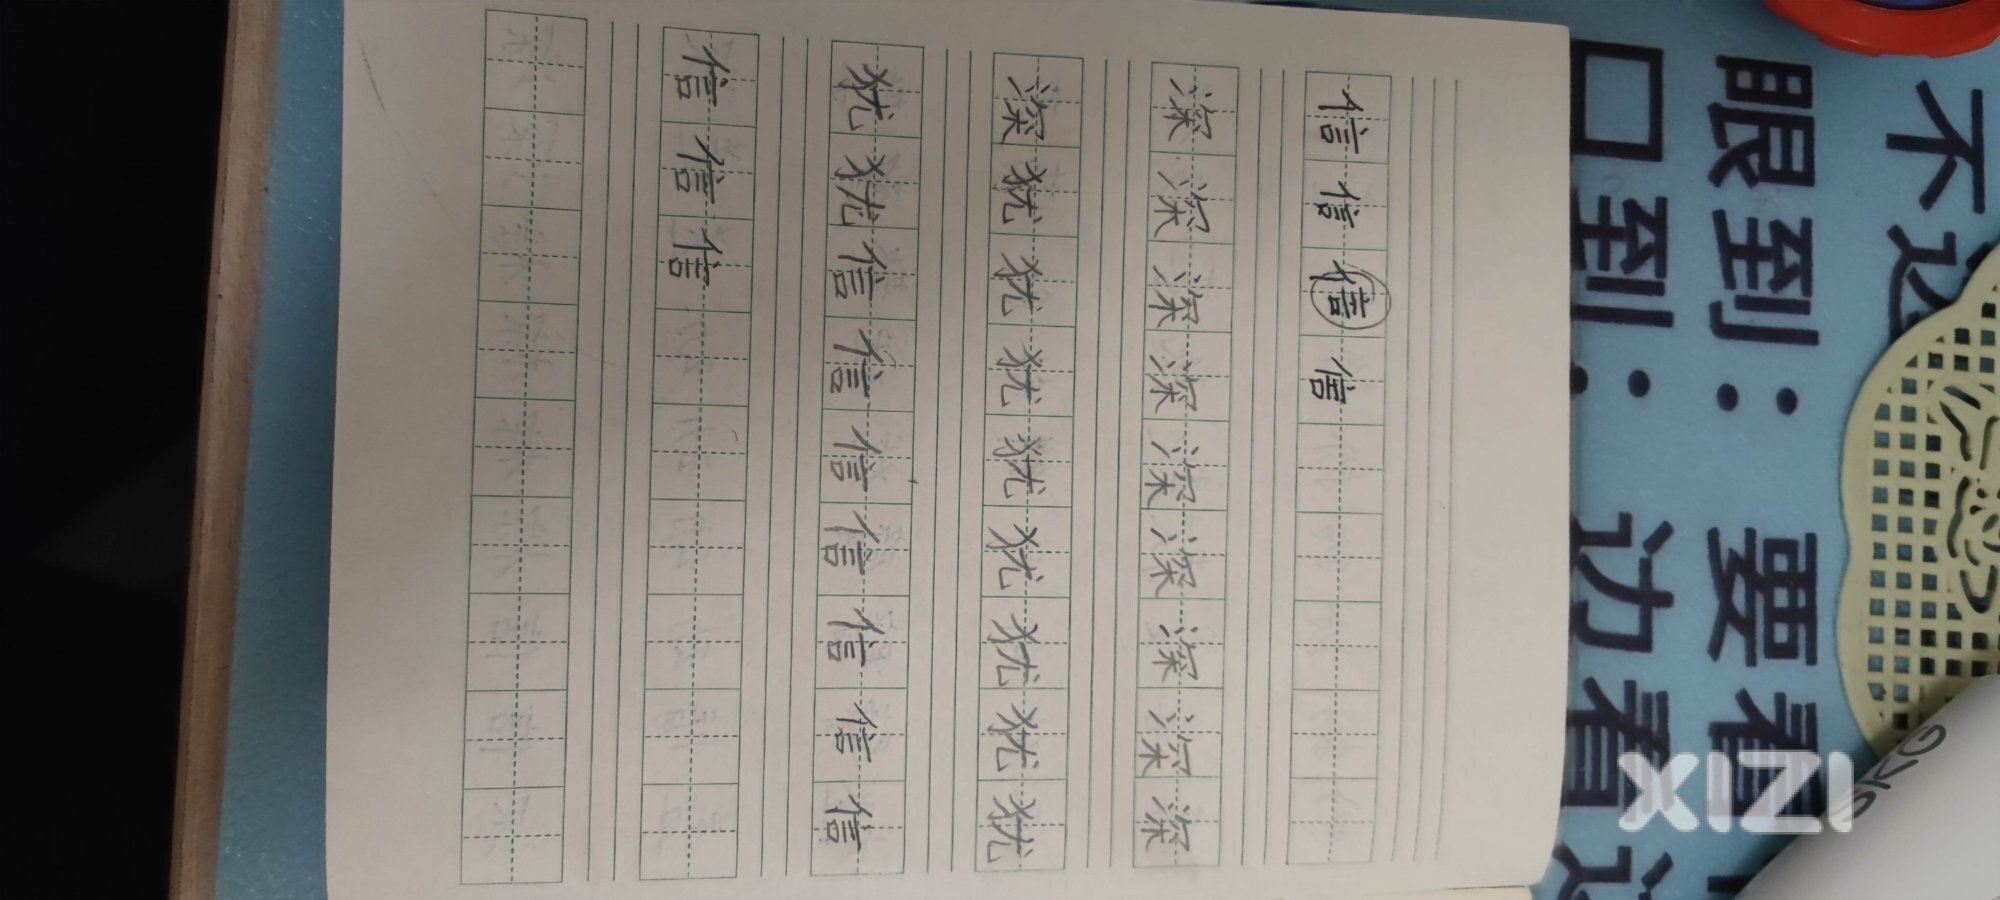 不
眼到：要看
口到：边看
信信信信
深深深深深深深深深
深犹犹犹犹犹犹犹犹
犹犹信信信信信信信
信信信
XIZI